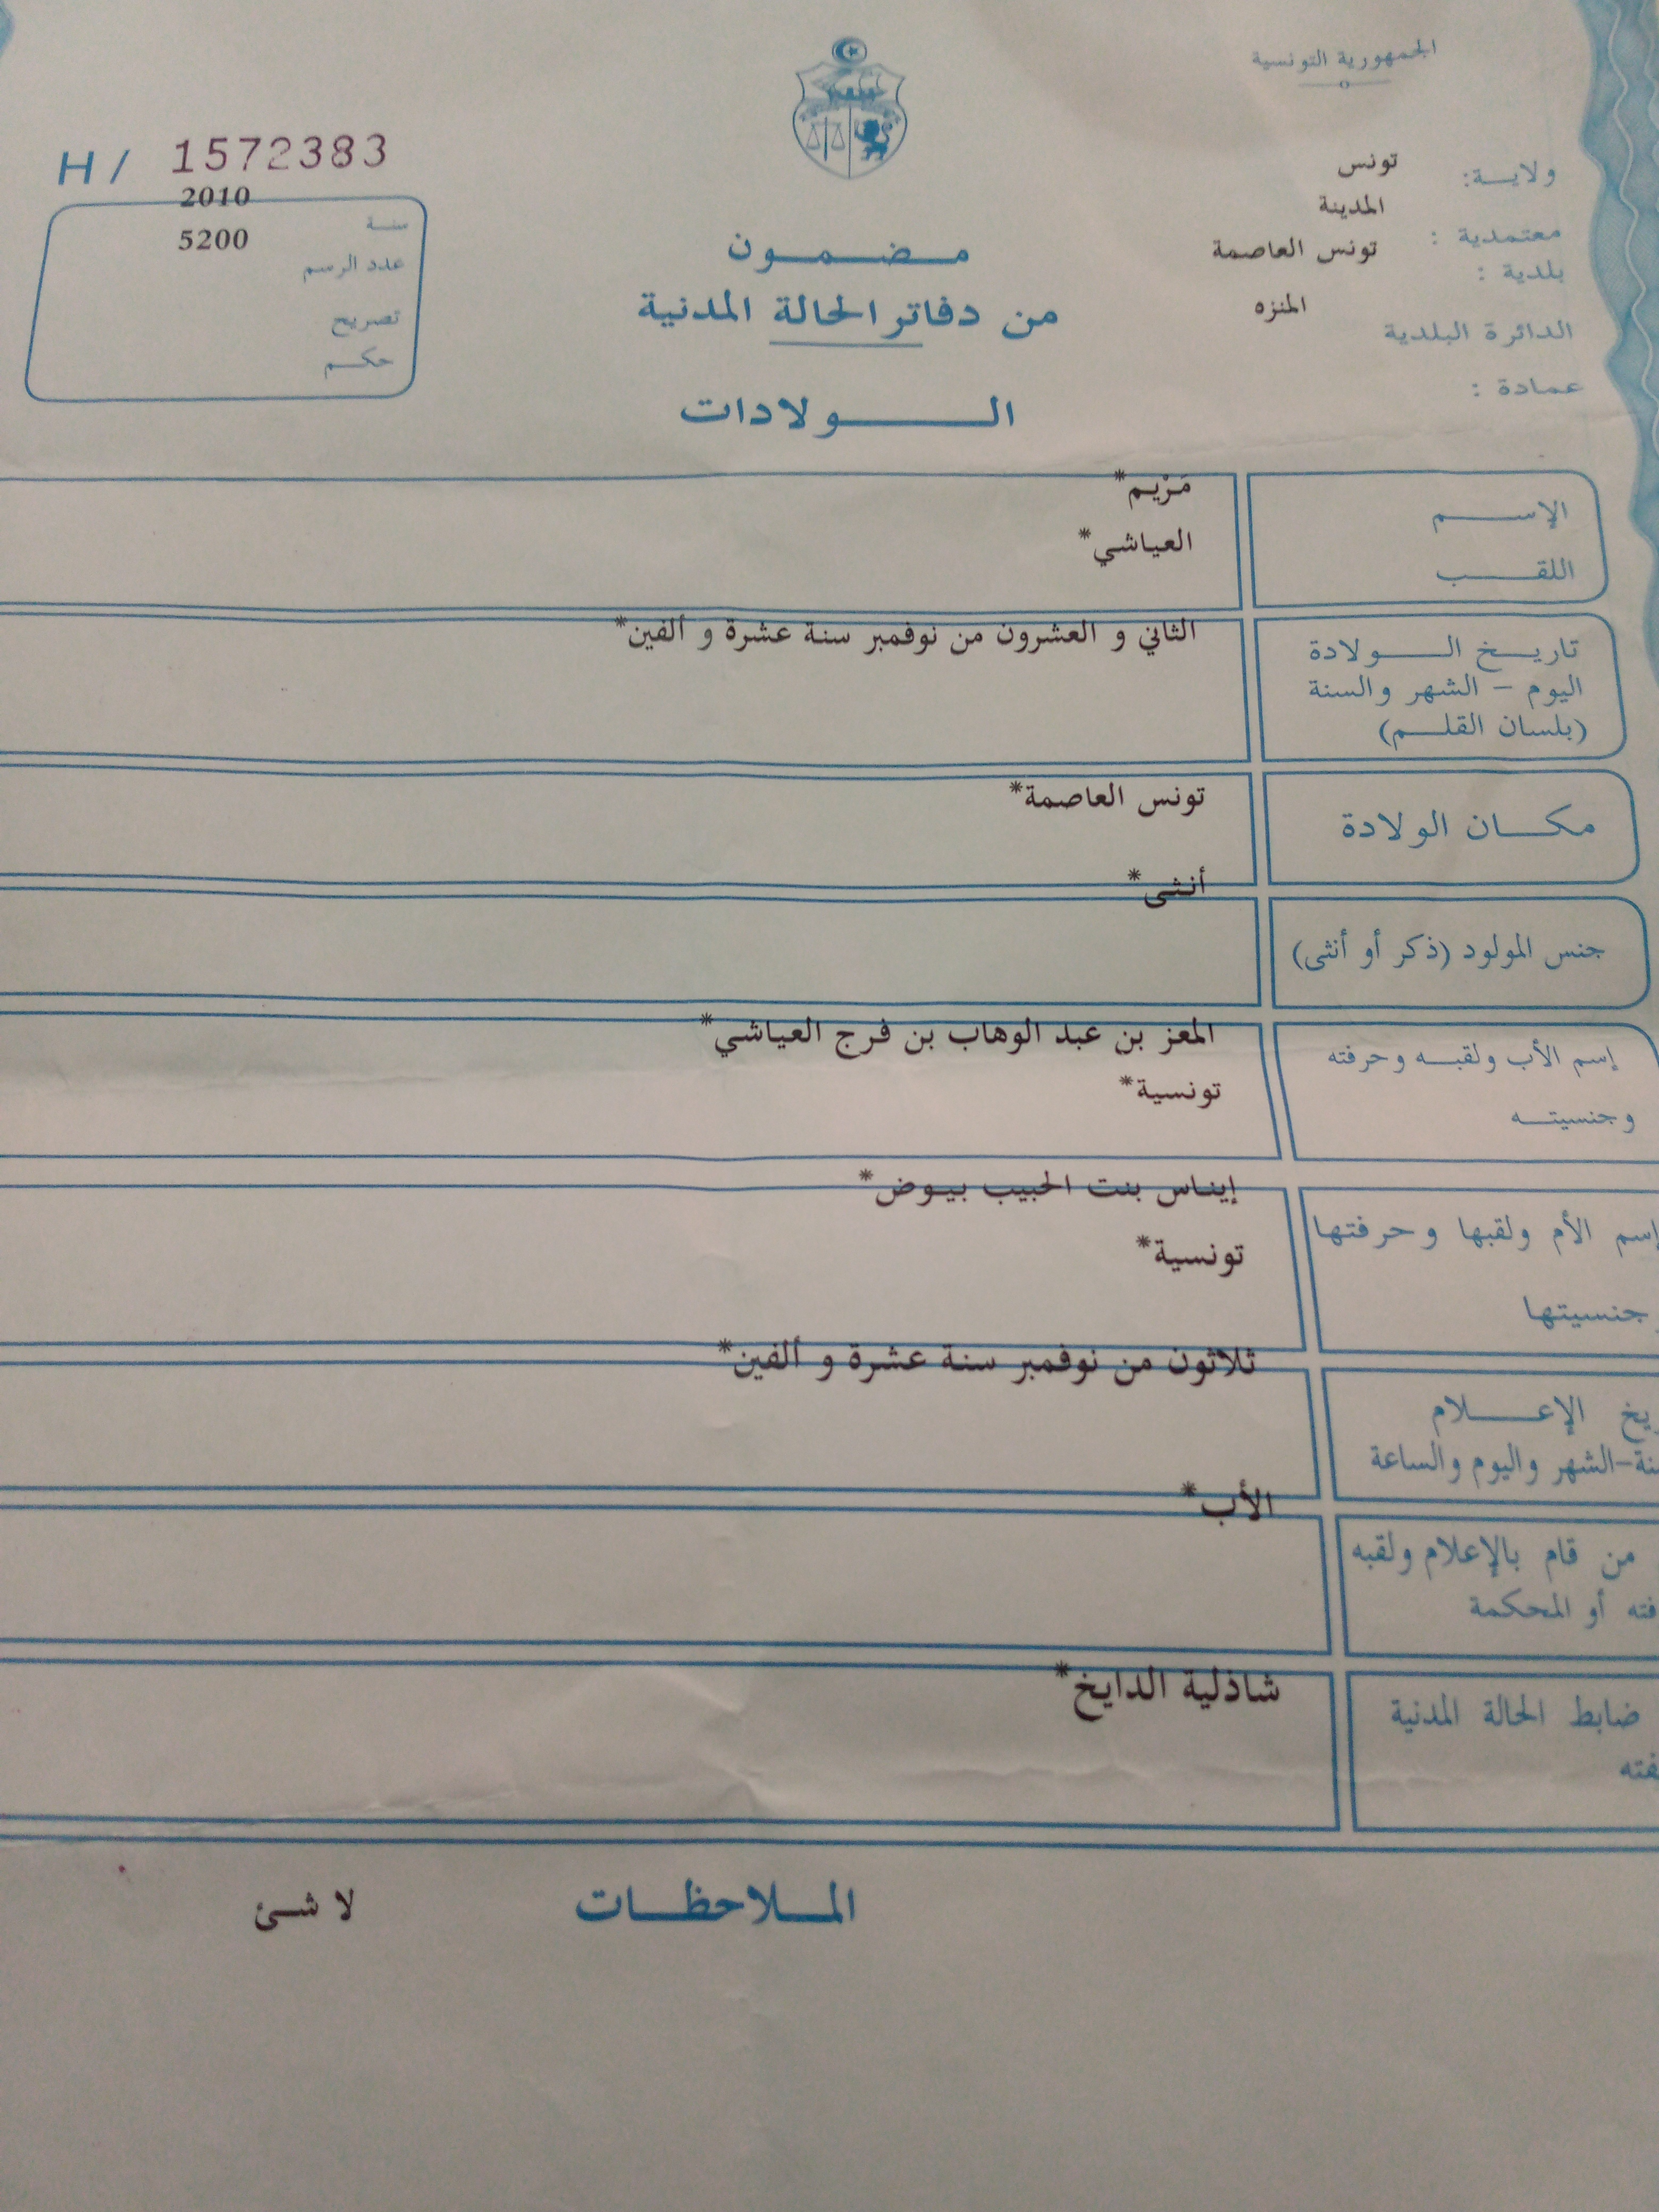 الجمهورية التونسية
ولاية: تونس
معتمدية : المدينة
بلدية : تونس العاصمة
الدائرة البلدية المنزه
عمادة :
H/ 1572383
سنة 2010
عدد الرسم 5200
تصريح
حكم
مضمون
من دفاتر الحالة المدنية
الولادات
الإسم مَرْيم*
اللقب العياشي*
تاريخ الولادة الثاني و العشرون من نوفمبر سنة عشرة و ألفين*
اليوم – الشهر والسنة
(بلسان القلم)
مكان الولادة تونس العاصمة*
جنس المولود (ذكر أو أنثى) أنثى*
إسم الأب ولقبه وحرفته المعز بن عبد الوهاب بن فرج العياشي*
وجنسيته تونسية*
إسم الأم ولقبها وحرفتها إيناس بنت الحبيب بيوض*
جنسيتها تونسية*
يخ الإعلام ثلاثون من نوفمبر سنة عشرة و ألفين*
نة-الشهر واليوم والساعة
من قام بالإعلام ولقبه الأب*
فته أو المحكمة
ضابط الحالة المدنية شاذلية الدايخ*
فته
الملاحظات لا شئ